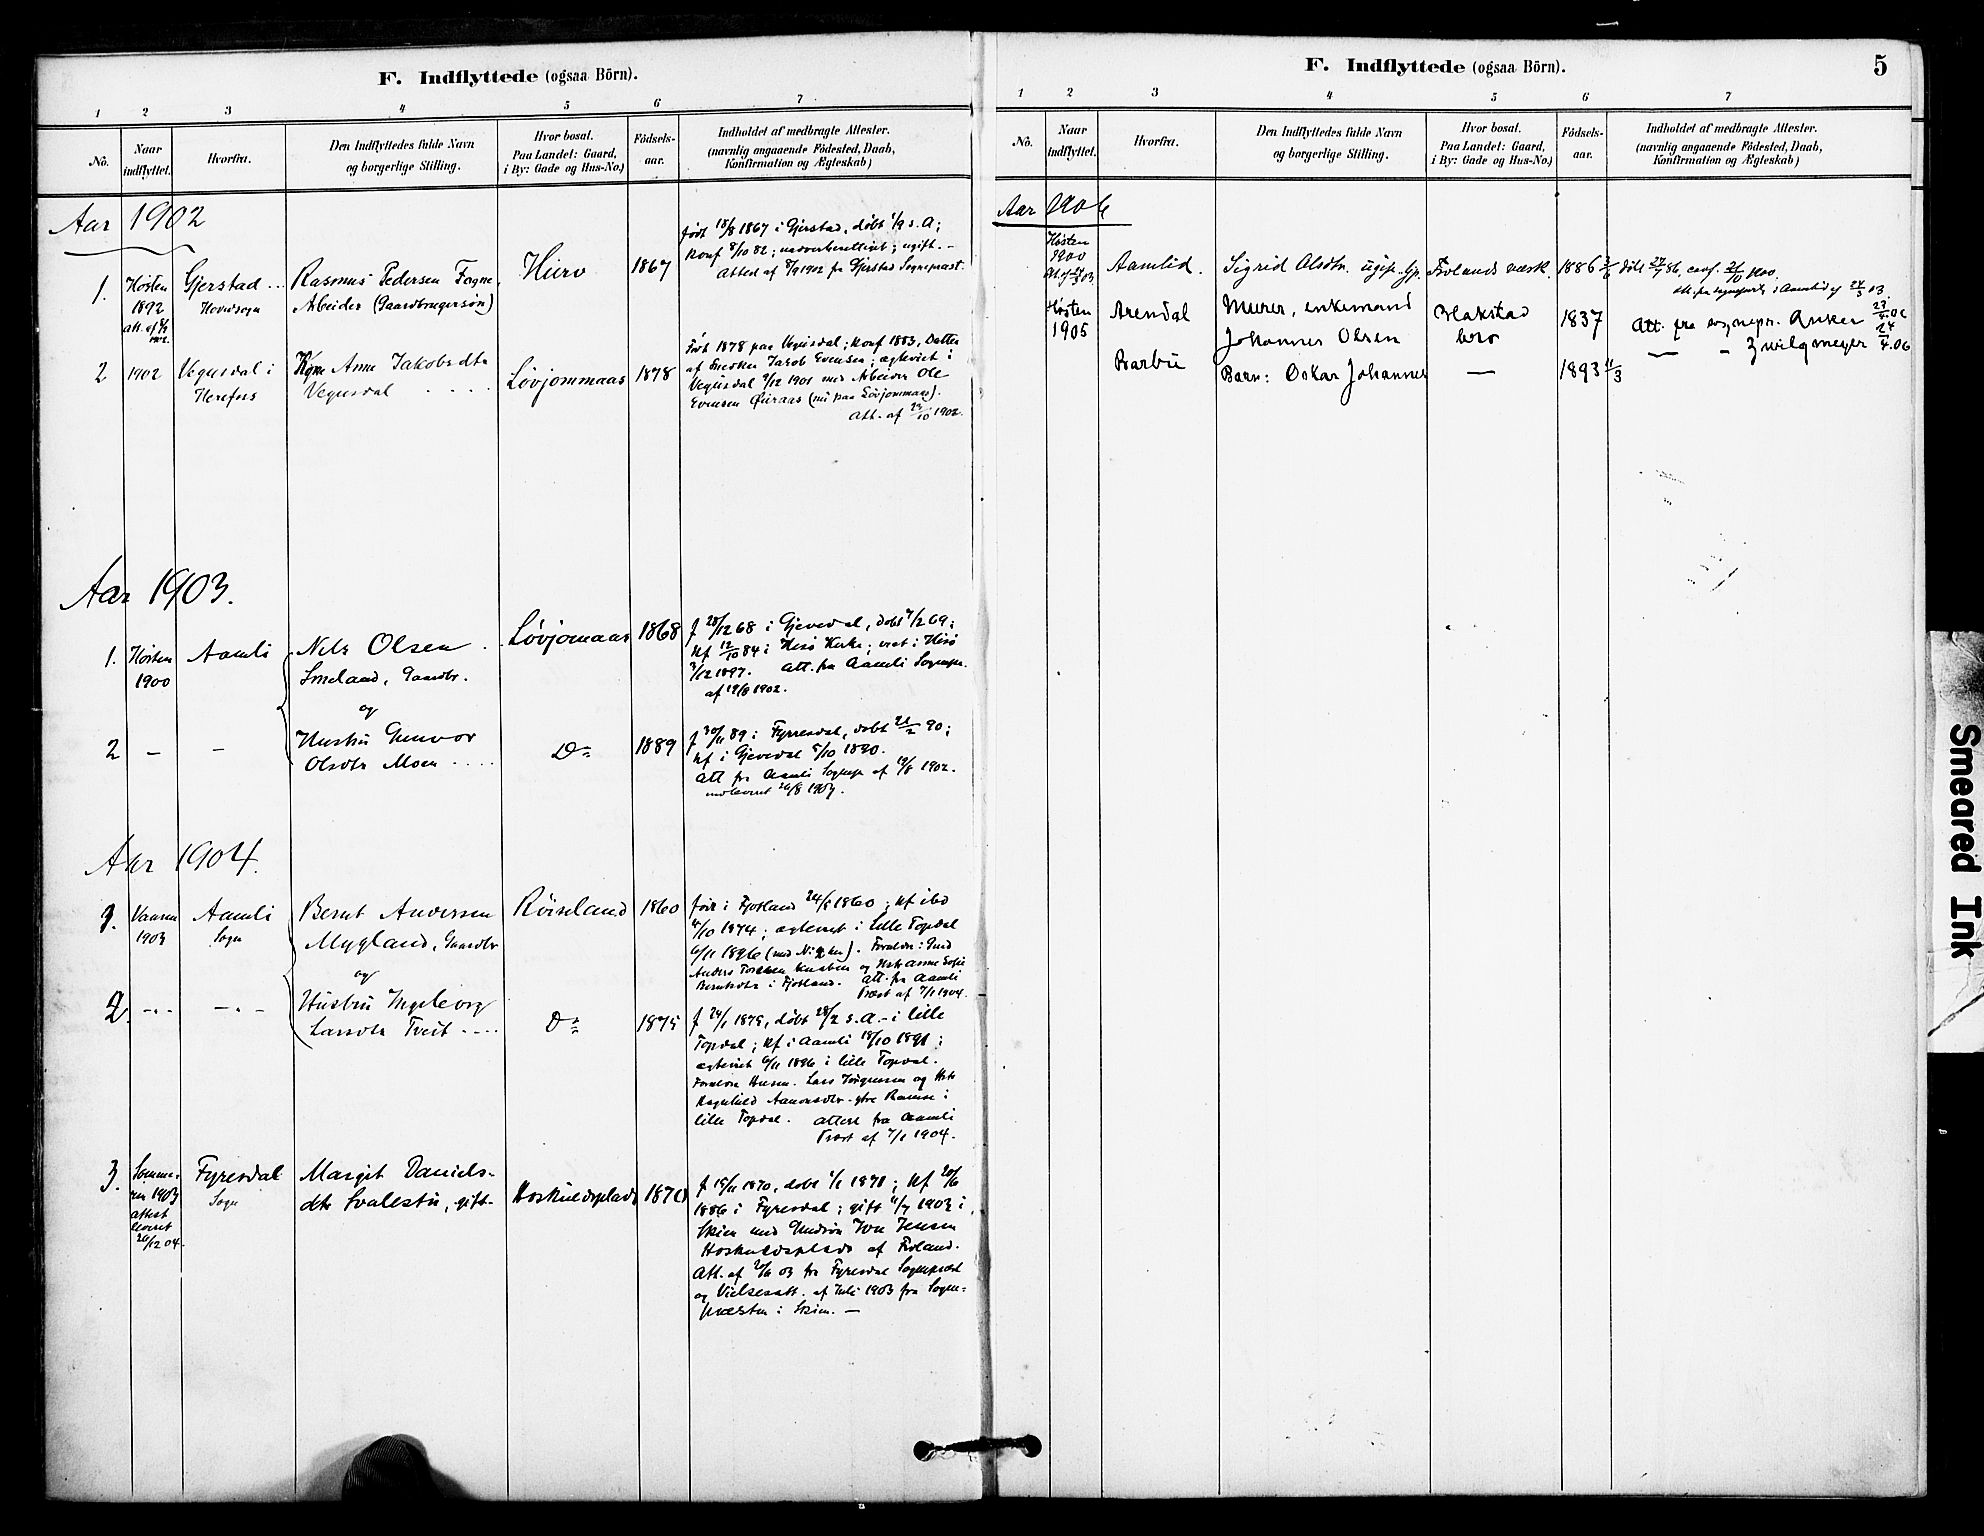 F. Indflyttede (ogsaa Börn).
1 2 3 4 5 6 7
No. Naar indflyttet. Hvorfra. Den Indflyttedes fulde Navn og borgerlige Stilling. Hvor bosat. Paa Landet: Gaard, i By: Gade og Hus-No.) Födsels-aar. Indholdet af medbragte Attester. (navnlig angaaende Födested, Daab, Konfirmation og Ægteskab)
Aar 1902
1. Høsten 1892 Att. af
Gjerstad Hovedsogn
Rasmus Pedersen Fogne,
Arbeider (Gaardbrugersøn)
1867
født 18/8 1867 i Gjerstad, døbt 1/9 s. A;
Konf 8/10 82; nadverberettiget; ugift. -
Attest af 8/9 1902 fra Gjerstad Sognepræst.
2 1902
Vegusdal i
Herefoss
Kone Anne Jakobsdtr
Vegusdal
Løvjommaas
1878
Født 1878 paa Vegusdal; Konf 1883, Datter
af Jakob Evensen; ægteviet i
Vegusdal 9/12 1901 med Arbeider Ole
Evensen (nu paa Løvjommaas).
Att. af 29/10 1902.
Aar 1903.
1. Høsten 1900
Aamli
Nels Olsen
Smeland, Gaardbr.
og
Løvjomaas
1868
f 28/12 68 i Gjevedal, døbt 7/2 69;
Kf 12/10 84 i Hisø Kirke; viet i Hisø
3/12 1897. Att. fra Aamli Sognepr.
af 19/8 1902.
2 — —
Hustru Gunvor
Olsdtr Moen
Do
1889
f 30/11 89 i Fyrresdal, døbt 21/2 90;
Kf i Gjevedal 5/10 1890.
Att fra Aamli Sognepr af 19/8 1902.
indleveret 26/8 1903.
Aar 1904.
1. Vaaren 1903
Aamli
Sogn
Bernt Andersen
Mygland, Gaardbr
og
Røiseland
1860
født i Fjotland 24/5 1860; Kf ibd
4/10 1874; ægteviet i Lille Topdal
6/11 1896 (med No 2 her). Forældre: Gmd
Anders Knaben og Hstr Anne Sofie
Berntsdtr i Fjotland. Att. fra Aamli
Præst af 7/1 1904.
2. -.- -.-
Hustru Ingeborg
Larsdtr Tveit
Do
1875
f 24/1 1875, døbt 28/2 s. A. - i Lille
Topdal; Kf i Aamli 18/10 1891;
ægteviet 6/11 1896 i Lille Topdal.
Forældre Husm. Lars Jörgensen og Hstr
Ragnhild Aanonsdtr ytre Ramse i
Lille Topdal. Attest fra Aamli
Præst af 7/1 1904.
3. Sommeren 1903
attest
leveret
20/12 04.
Fyresdal
Sogn
Margit Daniels-
dtr Svalestu, gift
Hoskuldsplads
1870
f 15/11 1870, døbt 1/1 1871; Kf 20/6
1886 i Fyresdal; gift 11/7 1903 i
Skien med Jon Jensen
Hoskuldsplads af Froland.
Att. af 20/6 03 fra Fyresdal Sognepræst
og Vielsesatt. af Juli 1903 fra Sogne-
præsten i Skien. —
F. Indflyttede (ogsaa Börn). 5
1 2 3 4 5 6 7
No. Naar indflyttet. Hvorfra. Den Indflyttedes fulde Navn og borgerlige Stilling. Hvor bosat. Paa Landet: Gaard, i By: Gade og Hus-No.) Födsels-aar. Indholdet af medbragte Attester. (navnlig angaaende Födested, Daab, Konfirmation og Ægteskab)
Aar 1906
Høsten
1900
Aamlid. Sigrid Olsdtr. ugift Frolands værk. 1886 døbt 27/7 86, conf. 1900.
att. fra sognepr. i Aamlid af 24/3 03.
Høsten
1905
Arendal
Murer, enkemand
Johannes Olsen
Blakstad
bro
1837
Att. fra sognepr. Anker 23/4.06
— " — Zwilgmeyer 24/4.06
Barbu
Barn: Oskar Johannes — 1893 11/3
Smeared Ink